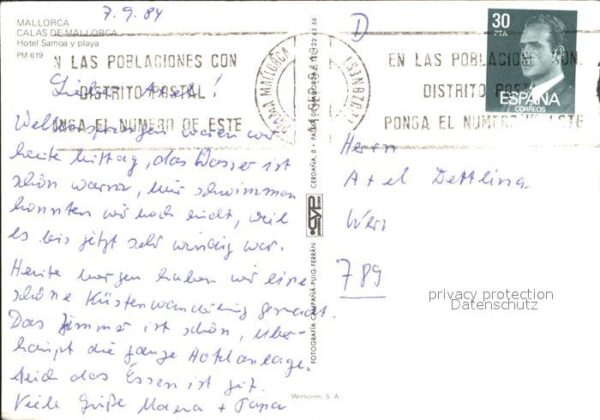 7.9.84
MALLORCA
CALAS DE MALLORCA
Hotel Samoa y playa
PM 619
N LAS POBLACIONES CON
DISTRITO POSTAL
ONGA EL NUMERO DE ESTE
PALMA MALLORCA
EN LAS POBLACIONES CON
DISTRITO POSTAL
PONGA EL NUMERO DE ESTE
30
PTA
ESPAÑA
CORREOS
D
Lieber Axel!
Wellenspringen waren wir
heute Mittag, das Wasser ist
schön warm, nur schwimmen
konnten wir noch nicht, weil
es bis jetzt sehr windig war.
Heute morgen haben wir eine
schöne Küstenwanderung gemacht.
Das Zimmer ist schön, über-
haupt die ganze Hotelanlage.
Auch das Essen ist gut.
Viele Grüße Mama + Papa
FOTOGRAFIA CAMPAÑÁ-PUIG-FERRÁN
CYP
Herrn
Axel Dettling
789
privacy protection
Datenschutz